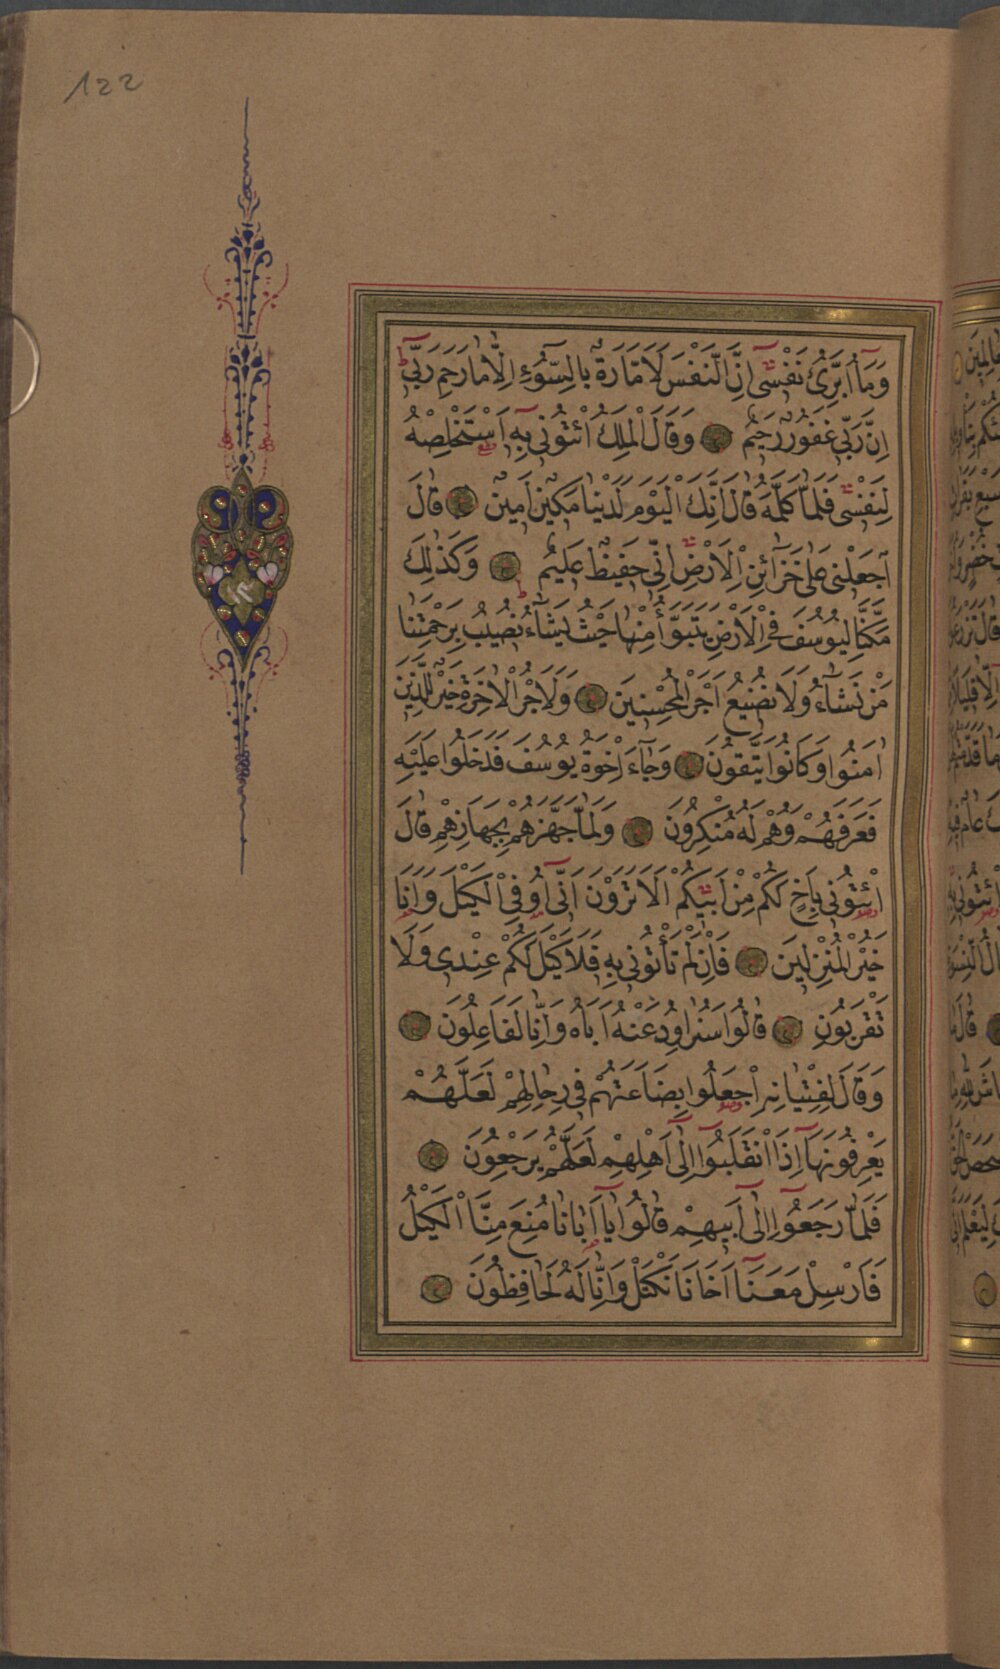 122
وَمَٓا اُبَرِّئُ نَفْسٖى اِنَّ النَّفْسَ لَاَمَّارَةٌ بِالسُّوءِ اِلَّا مَا رَحِمَ رَبّٖى
اِنَّ رَبّٖى غَفُورٌ رَحٖيمٌ وَقَالَ الْمَلِكُ ائْتُونٖى بِهٖٓ اَسْتَخْلِصْهُ
لِنَفْسٖى فَلَمَّا كَلَّمَهُ قَالَ اِنَّكَ الْيَوْمَ لَدَيْنَا مَكٖينٌ اَمٖينٌ قَالَ
اجْعَلْنٖى عَلٰى خَزَٓائِنِ الْاَرْضِ اِنّٖى حَفٖيظٌ عَلٖيمٌ وَكَذٰلِكَ
مَكَّنَّا لِيُوسُفَ فِى الْاَرْضِ يَتَبَوَّاُ مِنْهَا حَيْثُ يَشَٓاءُ نُصٖيبُ بِرَحْمَتِنَا
مَنْ نَشَٓاءُ وَلَا نُضٖيعُ اَجْرَ الْمُحْسِنٖينَ وَلَاَجْرُ الْاٰخِرَةِ خَيْرٌ لِلَّذٖينَ
اٰمَنُوا وَكَانُوا يَتَّقُونَ وَجَٓاءَ اِخْوَةُ يُوسُفَ فَدَخَلُوا عَلَيْهِ
فَعَرَفَهُمْ وَهُمْ لَهُ مُنْكِرُونَ وَلَمَّا جَهَّزَهُمْ بِجَهَازِهِمْ قَالَ
ائْتُونٖى بِاَخٍ لَكُمْ مِنْ اَبٖيكُمْ اَلَا تَرَوْنَ اَنّٖٓى اُوفِى الْكَيْلَ وَاَنَا
خَيْرُ الْمُنْزِلٖينَ فَاِنْ لَمْ تَأْتُونٖى بِهٖ فَلَا كَيْلَ لَكُمْ عِنْدٖى وَلَا
تَقْرَبُونِ قَالُوا سَنُرَاوِدُ عَنْهُ اَبَاهُ وَاِنَّا لَفَاعِلُونَ
وَقَالَ لِفِتْيَانِهِ اجْعَلُوا بِضَاعَتَهُمْ فٖى رِحَالِهِمْ لَعَلَّهُمْ
يَعْرِفُونَهَٓا اِذَا انْقَلَبُٓوا اِلٰٓى اَهْلِهِمْ لَعَلَّهُمْ يَرْجِعُونَ
فَلَمَّا رَجَعُٓوا اِلٰٓى اَبٖيهِمْ قَالُوا يَٓا اَبَانَا مُنِعَ مِنَّا الْكَيْلُ
فَاَرْسِلْ مَعَنَٓا اَخَانَا نَكْتَلْ وَاِنَّا لَهُ لَحَافِظُونَ